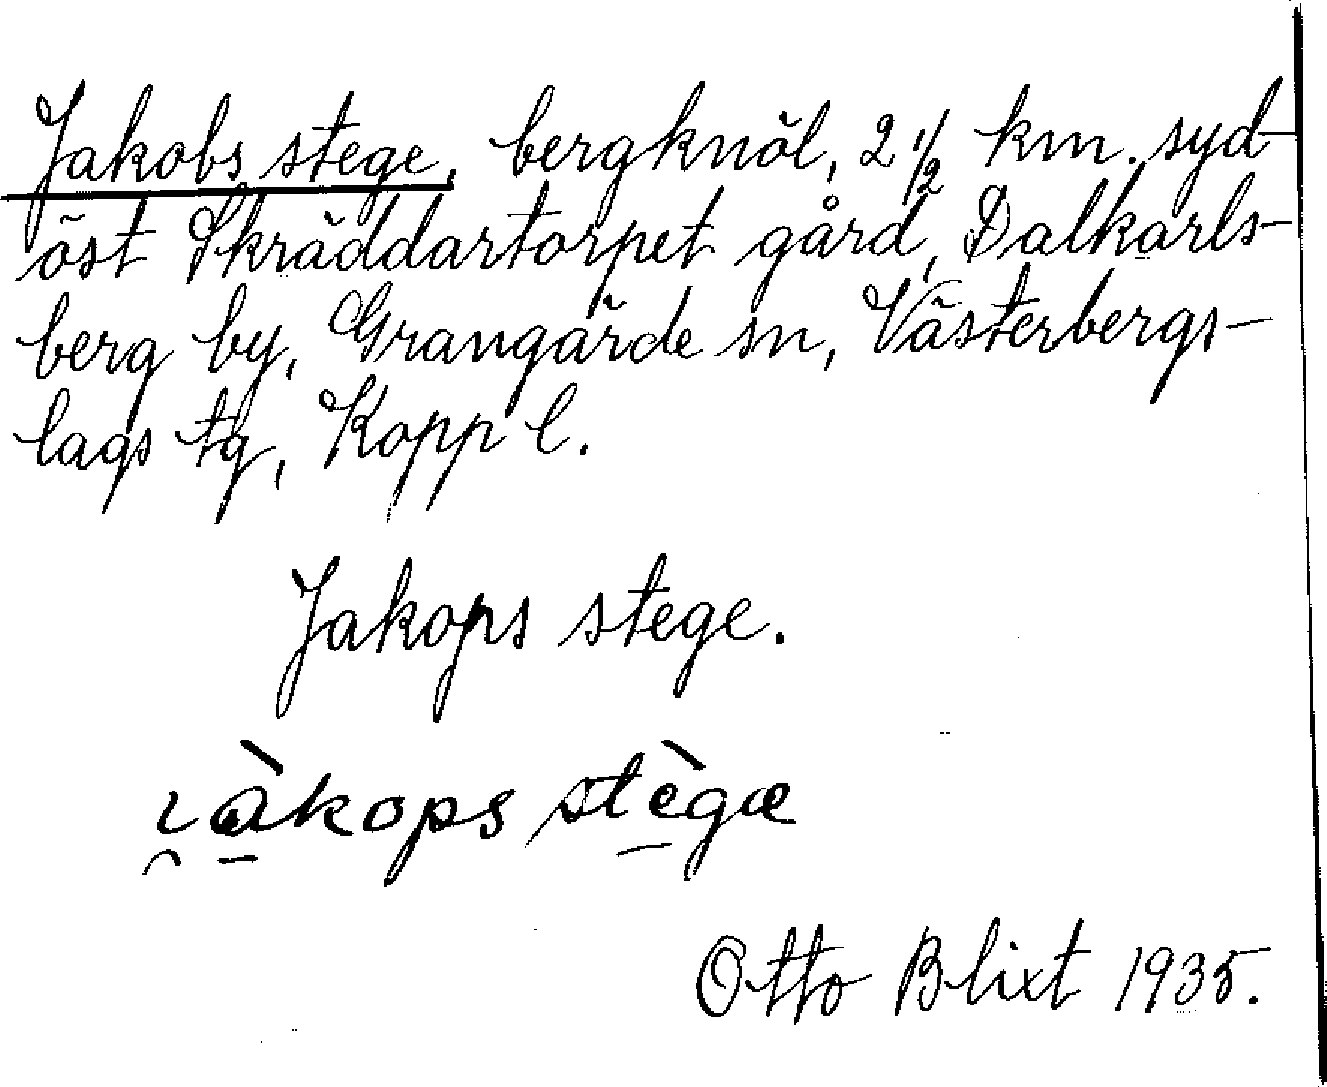 Jakobs stege, bergknöl, 2 1/2 km. syd-
öst Skräddartorpet gård, Dalkarls-
berg by, Grangärde sn, Västerbergs-
lags tg, Kopp l.
Jakops stege.
ı̯à̠kops stè̠gæ
Otto Blixt 1935.